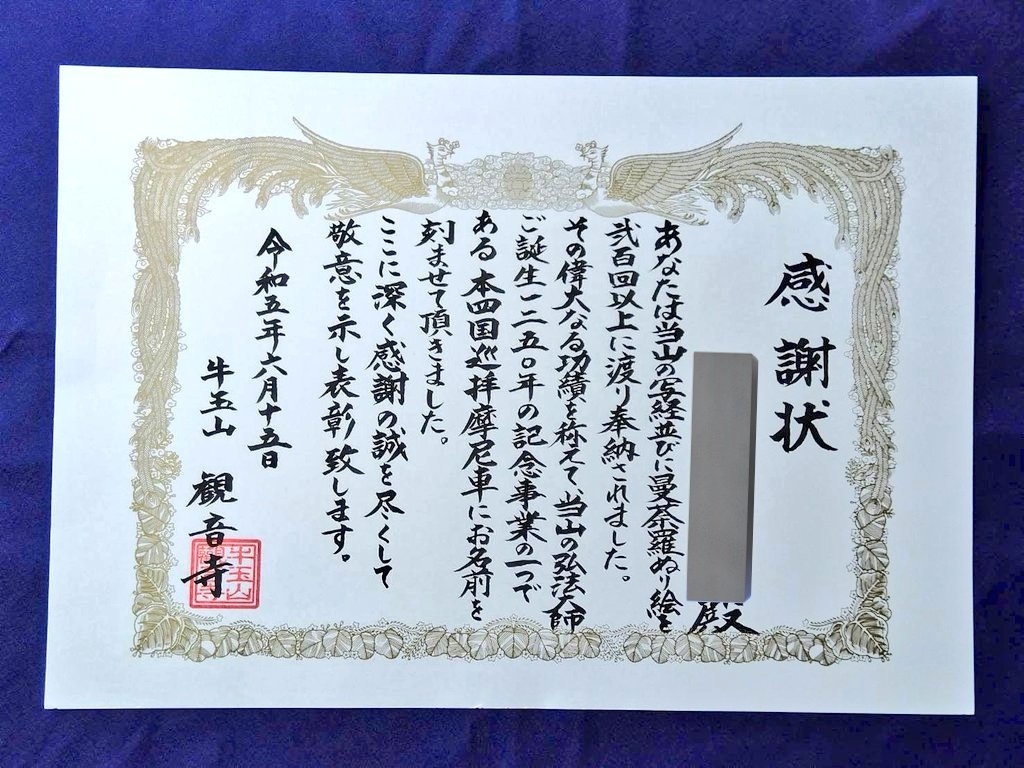 感謝状
殿
あなたは当山の写経並びに曼荼羅ぬり絵を
弐百回以上に渡り奉納されました。
その偉大なる功績を称えて当山の弘法大師
ご誕生一二五〇年の記念事業の一つで
ある本四国巡拝摩尼車にお名前を
刻ませて頂きました。
ここに深く感謝の誠を尽くして
敬意を示し表彰致します。
令和五年六月十五日
牛玉山
観音寺
牛玉山
観音寺